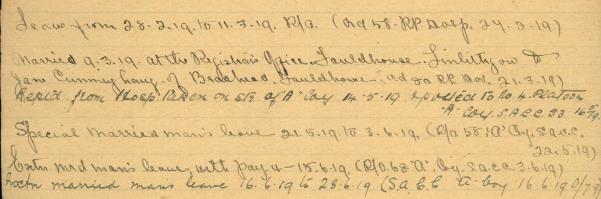 Leave from 28.2.19. to 11.3.19. R/O. (Ord 58. RP. Hosp. 24.3.19)
Married 9.3.19. at the Registrars Office Fauldhouse. Linlithgow to
Jane Cunningham, of Braehead Fauldhouse (Ord 50 RP. Hos. 21.3.19)
Repd. from Hosp. taken on str. of "A" Coy 14-5-19 posted to No. 4. Platoon
"A" Coy. S.A.C.C. 53. 16/5/19
Special Married man's leave 21.5.19. to 3.6.19. (R/O 58. "A" Coy. S.a.C.C.
22.5.19)
Extn mrd man's leave, with pay 4-15.6.19. (R/O.63. "A". Coy. S.a.C.C. 3.6.19)
Exctn married mans leave 16.6.19 to 28.6.19 (S.a.C.C "A" Coy 16.6.19 O/79)